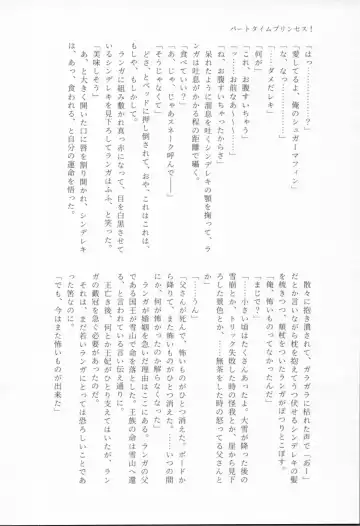 パートタイムプリンセス！
「はっ……？」
「愛してるよ、俺のシュガーマフィン」
「な、なっ……」
「……ダメだレキ」
「何が」
「これ、お腹すいちゃう」
「ッ……お前なあ――」
「ね、お腹すいちゃったからさ」
呆れたように溜息を吐くシンデレキの顎を掬って、ラ
ンガは吐息がかかる程の距離で囁いた。
「食べていい？」
「あ、じゃあスネーク呼んで――」
「そうじゃなくて」
どさ、とベッドに押し倒されて、おや、これはこれは、
もしかして。
ランガに組み敷かれ真っ赤になって、目を白黒させて
いるシンデレキを見下ろしてランガはふふ、と笑った。
「美味しそう」
あ、と大きく開いた口に唇を割り開かれ、シンデレキ
は、あっ、食われる、と自分の運命を悟った。
散々に抱き潰されて、ガラガラに枯れた声で「おー」
だとか言いながら枕を抱えてうつ伏せるシンデレキの髪
を梳きつつ、頬杖をついたランガがぽつりとこぼす。
「俺、怖いものってなかったんだ」
「まじで？」
「……小さい頃はたくさんあったよ。大雪が降った後の
雪崩とか、トリック失敗した時の怪我とか、崖から見下
ろした景色とか、……無茶をした時の怒ってる父さんと
か」
「……うん」
「父さんが死んで、怖いものがひとつ消えた。ボードか
ら降りて、また怖いものがひとつ消えた。……それなの
に、何が怖かったのか分からなくなった」
ランガが婚姻を急いだ理由はここにある。父親であ
る国王が雪山で命を落とした。王族の命は雪山へ還
る、と言われている言い伝え通りに。
王亡き後、何とか王妃がひとり支えてはいたが、ラン
ガの戴冠を急ぐ必要があったのだ。
それは、まだ若いランガにとっては恐ろしいことであ
「でも、今はまた怖いものが出来た」